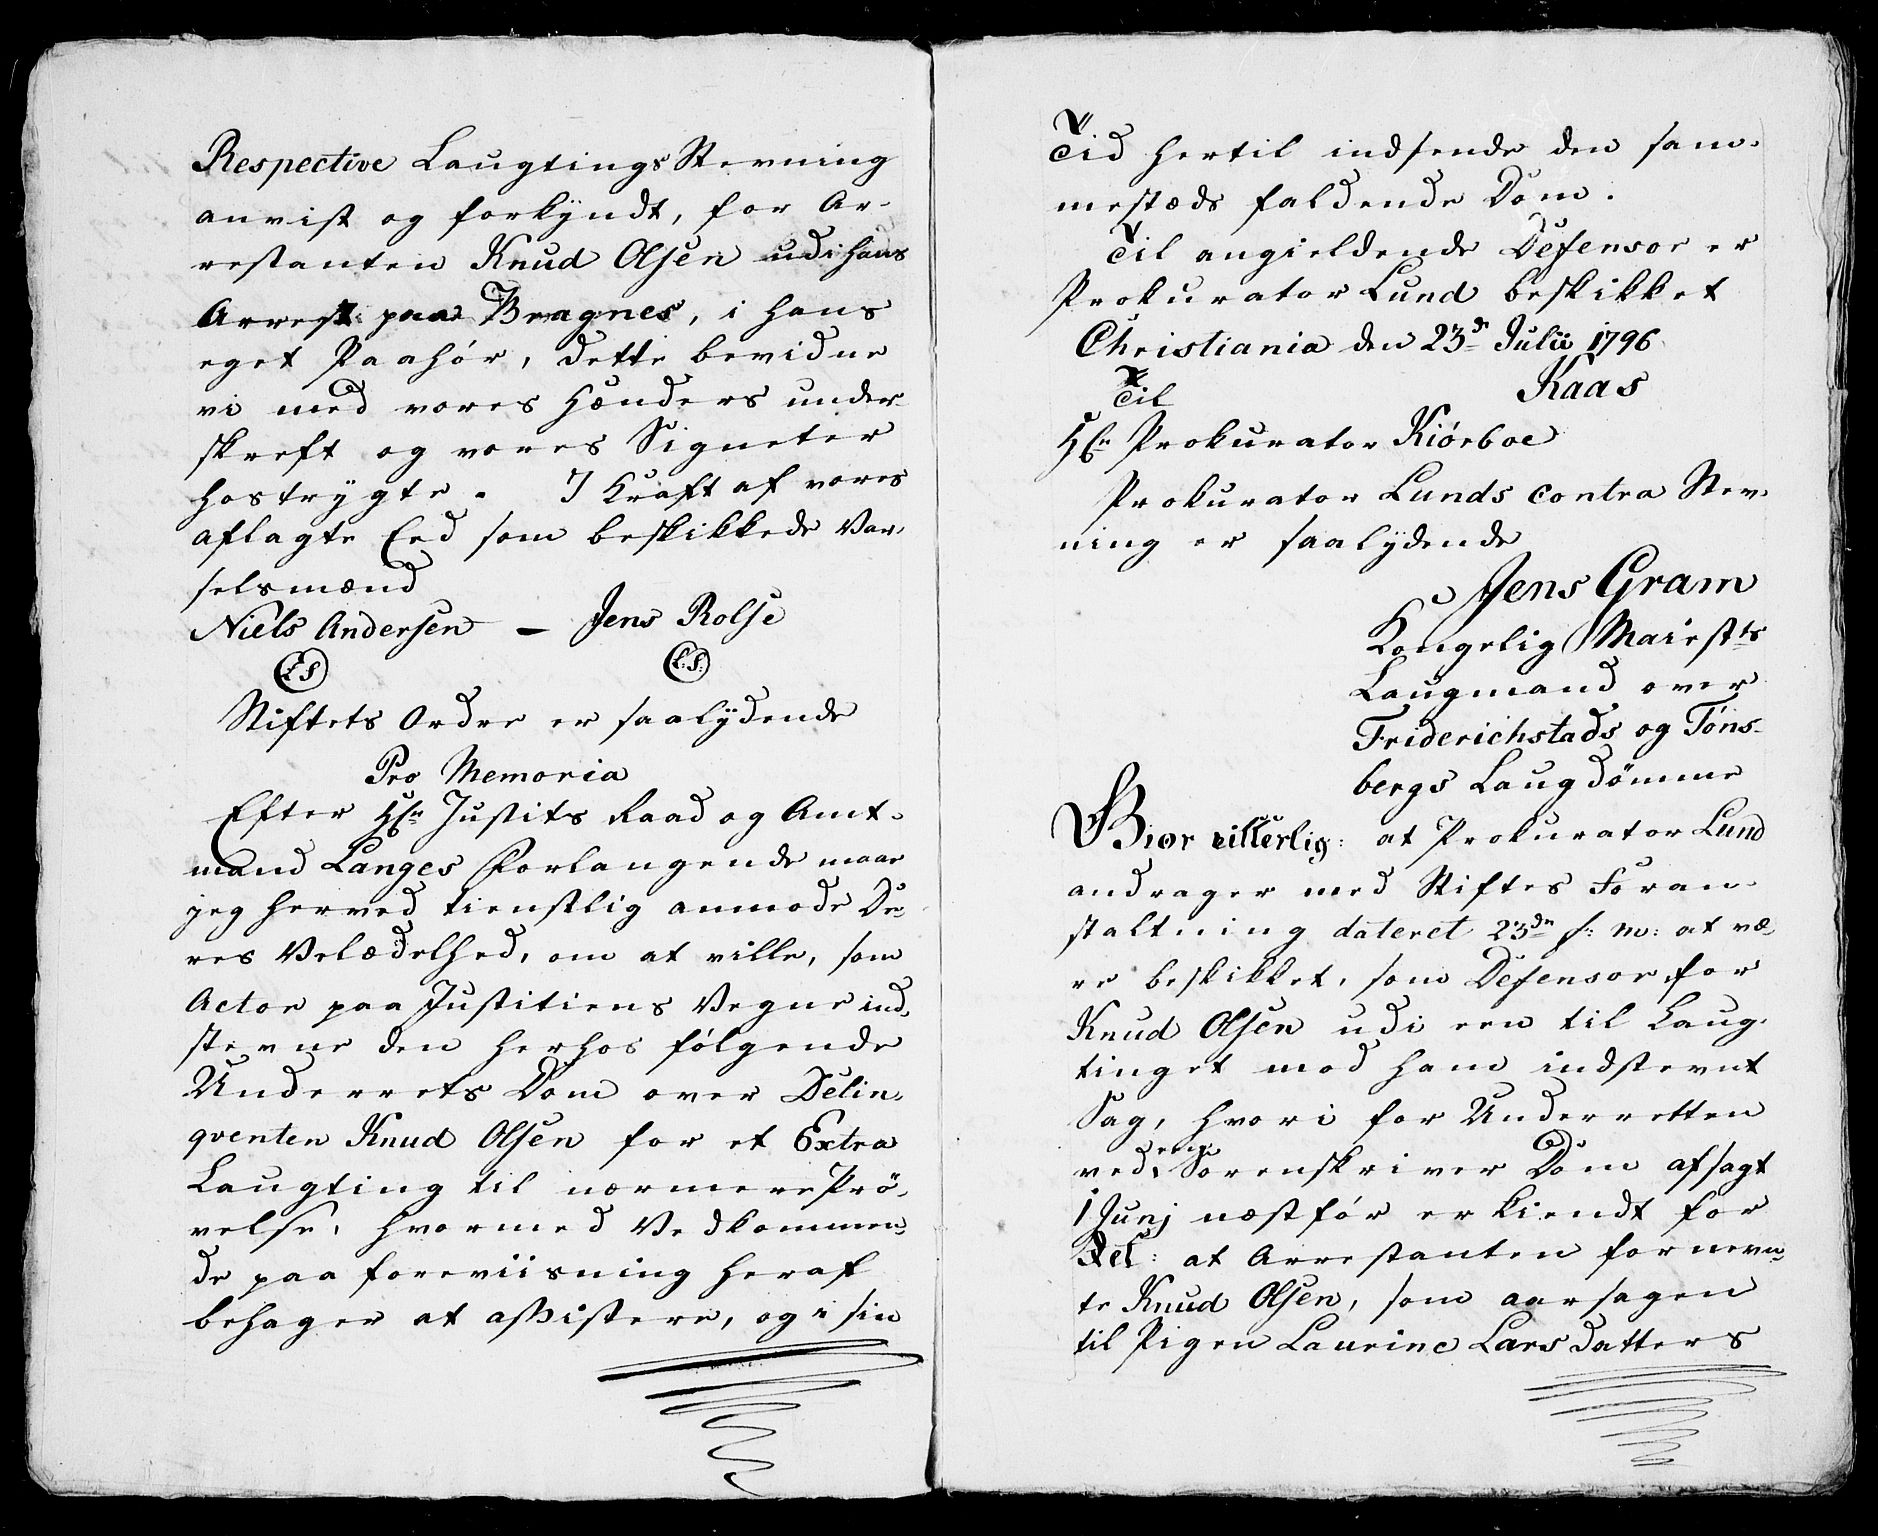 Respective Laugtings Stevning
anvist og forkyndt, for Ar-
restanten Knud Olsen udi hans
Arrest paa Bragnes, i hans
eget Paahör, dette bevidne
vi med vores Hænders under-
skreft og vores Signeter
hostrygte. I Kraft af vores
aflagte Eed som beskikkede Var-
selsmænd
Niels Andersen — Jens Rolse
LS L:S:
Stiftets Ordre er saalydende
Pro Memoria
Efter Hr Justits Raad og Amt-
mand Langes Forlangende maae
jeg herved tienstlig anmode De-
res Velædelhed, om at ville, som
Actor paa Justitiens Vegne ind-
stevne den herhos fölgende
Underrets Dom over Delin-
qventen Knud Olsen for et Extra
Laugting til nærmere Prö-
velse, hvormed Vedkommen-
de paa foreviisning heraf
behager at assistere, og i sin
Tid hertil indsende den sam-
mestæds faldende Dom.
Til angieldende Defensor er
Prokurator Lund beskikket
Christiania den 23de Julii 1796
Kaas
Til
Hr Prokurator Kiörboe
Prokurator Lunds contra Stev-
ning er saalydende
Jens Gram
Kongelig Maiestts
Laugmand over
Friderichstads og Töns-
bergs Laugdömme
Giör vitterlig: at Prokurator Lund
andrager med Stiftes Foran-
staltning dateret 23de f: m: at væ-
re beskikket, som Defensor for
Knud Olsen udi een til Laug-
tinget mod ham indstevnt
Sag, hvori for Underretten
ved Sorenskriver Dom afsagt
1 Junj næstför er kiendt for
Ret: at Arrestanten fornevn-
te Knud Olsen, som aarsagen
til Pigen Laurine Lars datters